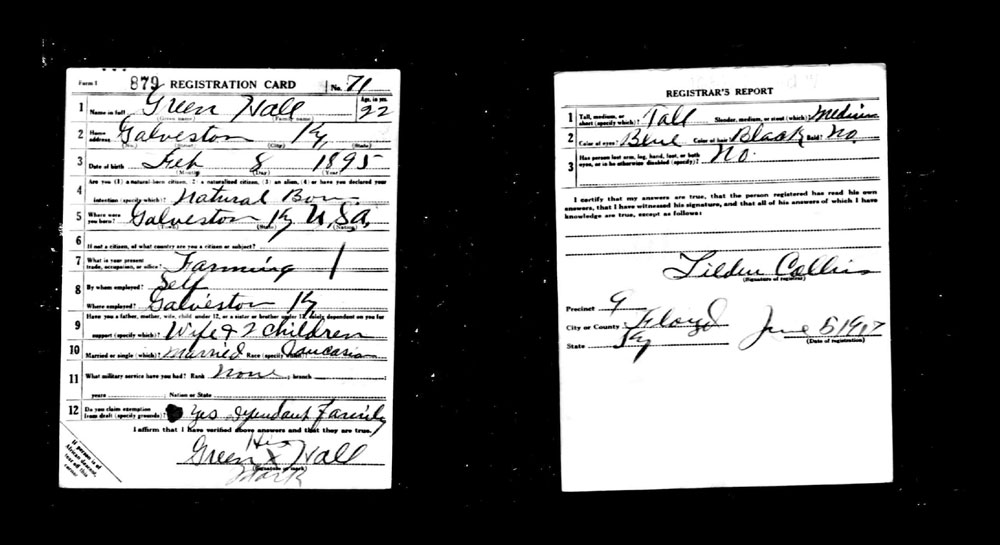 Form 1 879 REGISTRATION CARD No. 71
1 Name in full Green Hall Age, in yrs. 22
(Given name) (Family name)
2 Home address Galveston Ky
(No.) (Street) (City) (State)
3 Date of birth Feb 8 1895
(Month) (Day) (Year)
Are you (1) a natural-born citizen, (2) a naturalized citizen, (3) an alien, (4) or have you declared your
4 intention (specify which)? Natural Born
5 Where were you born? Galveston Ky U.S.A.
(Town) (State) (Nation)
6 If not a citizen, of what country are you a citizen or subject?
7 What is your present trade, occupation, or office? Farming 1
8 By whom employed? Self
Where employed? Galveston Ky
9 Have you a father, mother, wife, child under 12, or a sister or brother under 12, solely dependent on you for
support (specify which)? Wife & 2 Children
10 Married or single (which)? Married Race (specify which)? Caucasian
11 What military service have you had? Rank None ; branch
years Nation or State
12 Do you claim exemption from draft (specify grounds)? Yes dependant Family
I affirm that I have verified above answers and that they are true.
His
Green X Hall
(Signature or mark)
Mark
If person is of African descent, tear off this corner
REGISTRAR'S REPORT
1 Tall, medium, or short (specify which)? Tall Slender, medium, or stout (which)? Medium
2 Color of eyes? Blue Color of hair? Black Bald? No.
3 Has person lost arm, leg, hand, foot, or both eyes, or is he otherwise disabled (specify)? No.
I certify that my answers are true, that the person registered has read his own
answers, that I have witnessed his signature, and that all of his answers of which I have
knowledge are true, except as follows:
Tilden Collins
(Signature of registrar)
Precinct 9
City or County Floyd
State Ky
June 5 1917
(Date of registration)